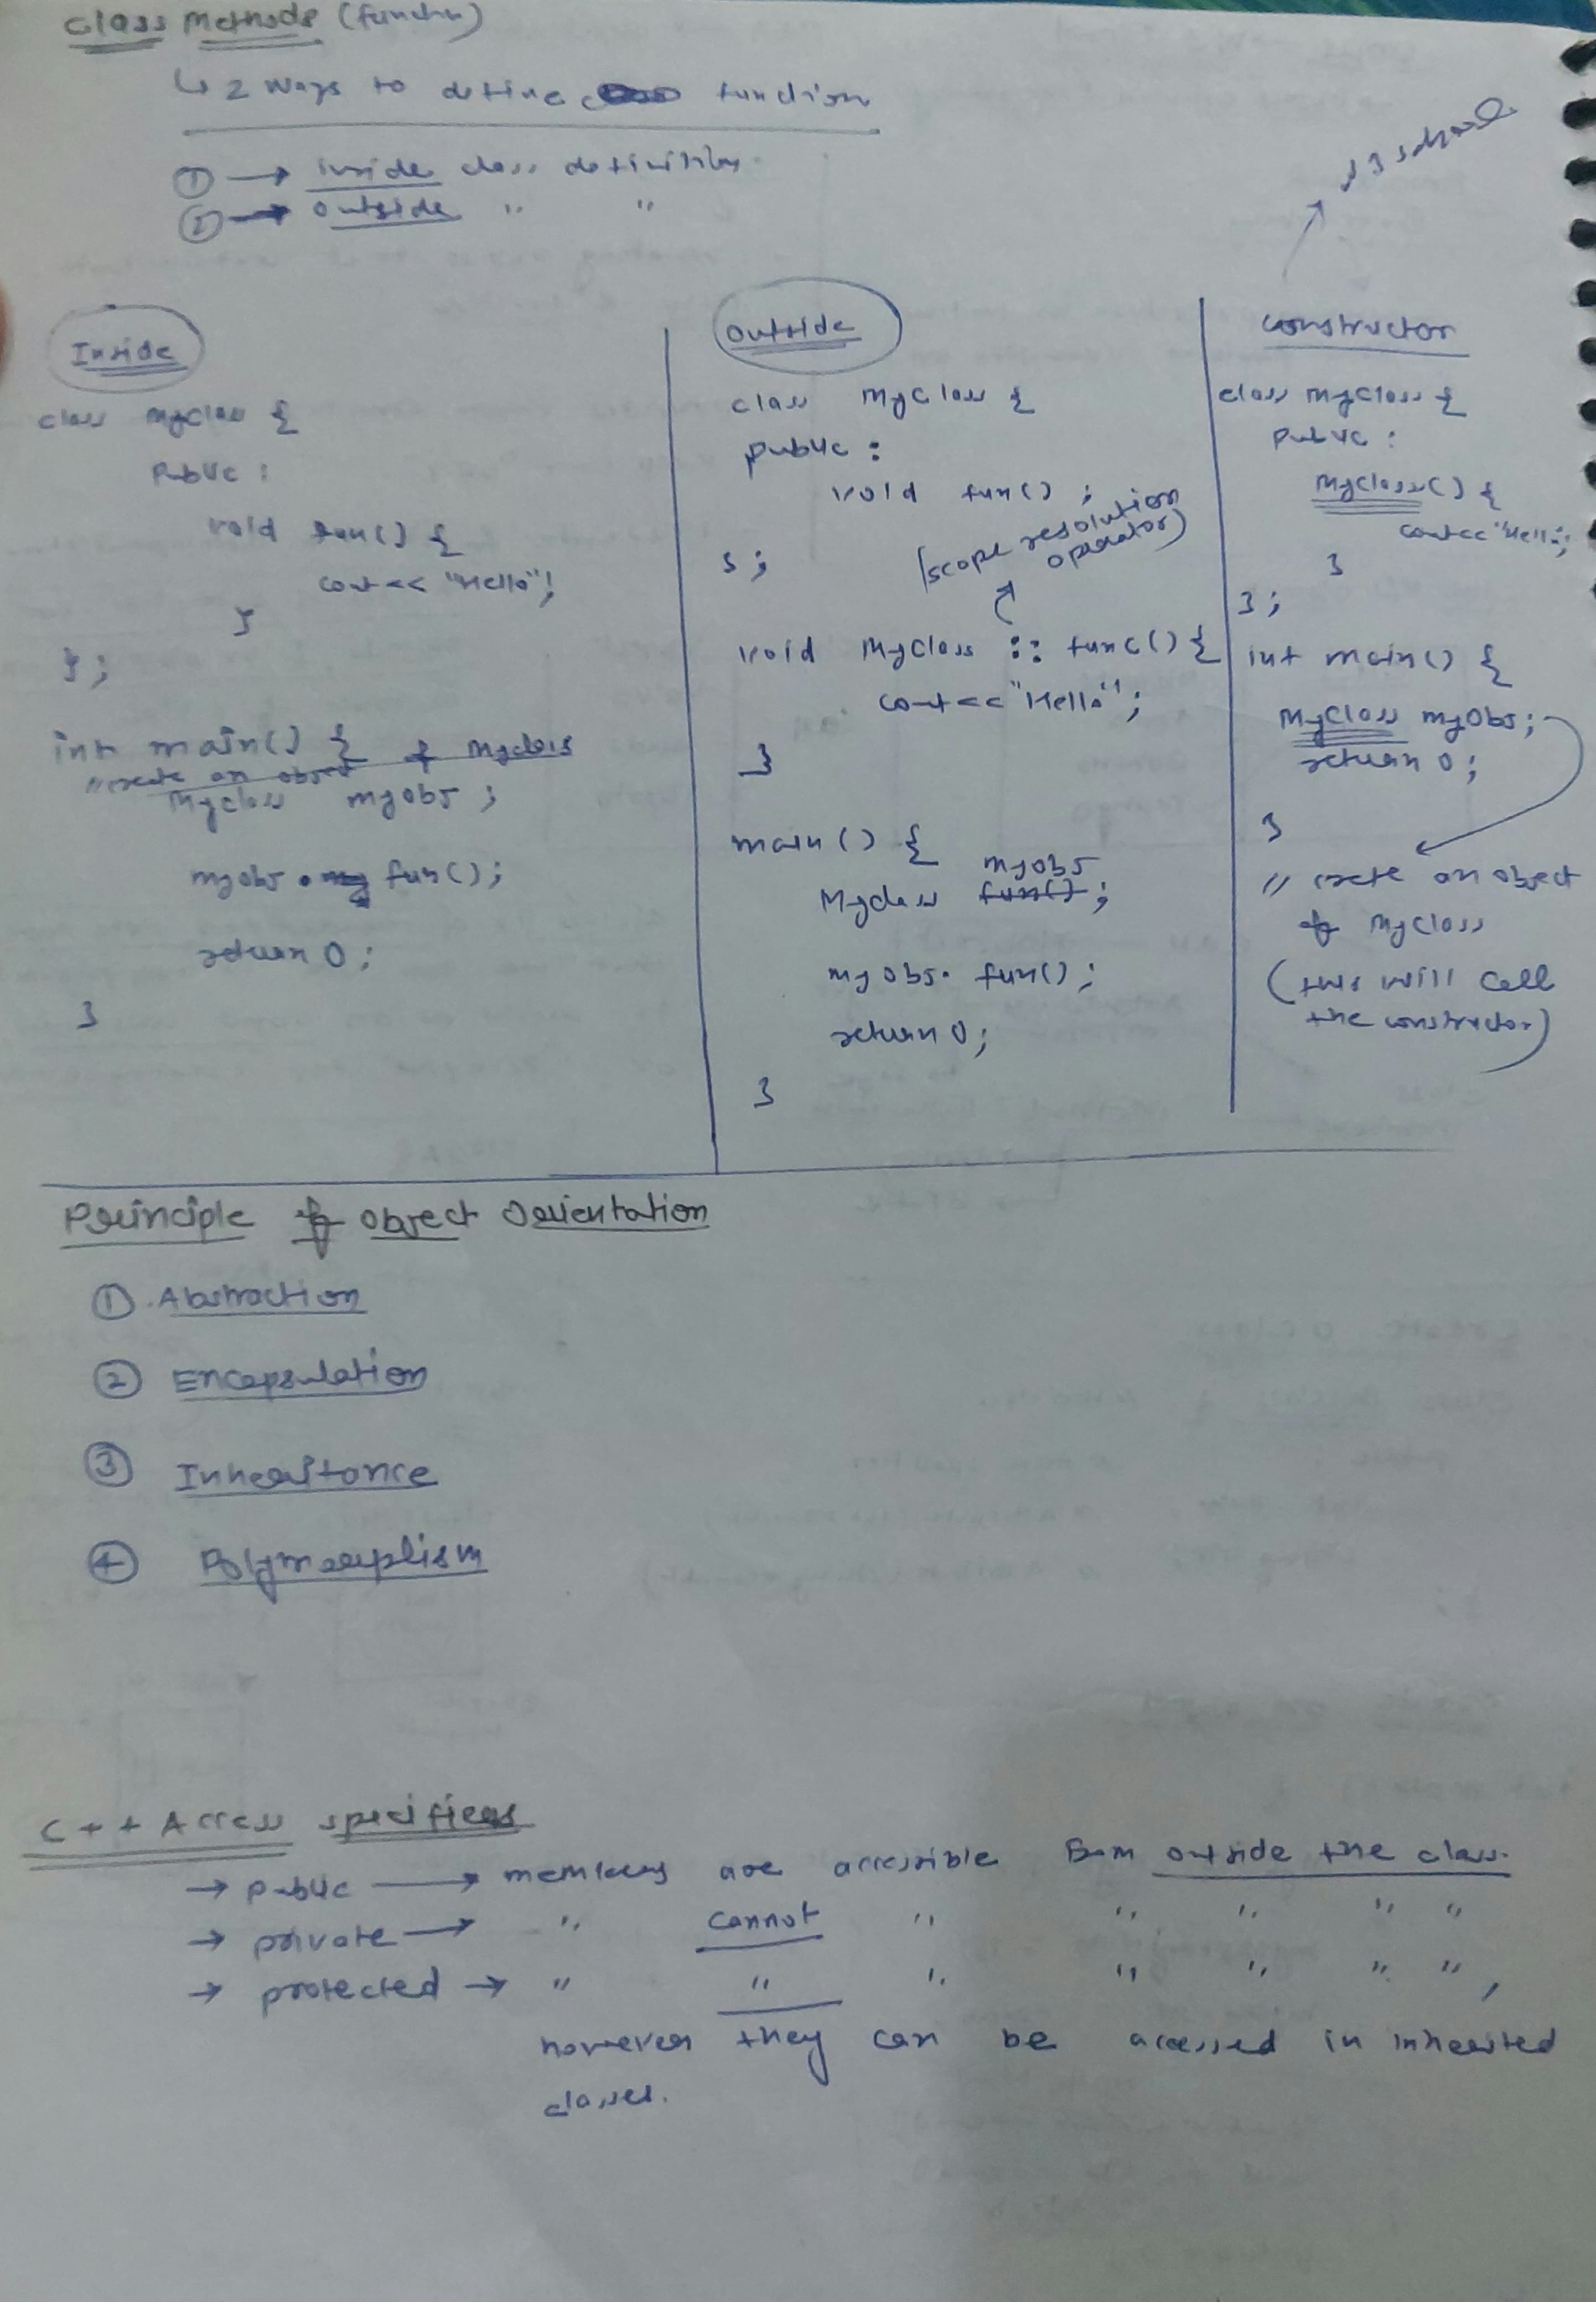 Class Methods (function)
↳ 2 ways to define function
① → inside class definition.
② → outside " "
Inside
class MyClass {
Public :
void fun() {
cout << "Hello";
}
};
int main() {
// create an object of Myclass
Myclass myobj ;
myobj . fun();
return 0;
}
Outside
class MyClass {
public :
void fun() ;
};
(scope resolution
operator)
void MyClass :: func() {
cout << "Hello";
}
main() {
myobj
Myclass fun();
myobj. fun();
return 0;
}
w3school
constructor
class MyClass {
public :
MyClass() {
cout<< "Hello";
}
};
int main() {
MyClass myobj;
return 0;
}
// crete an object
of MyClass
(this will call
the constructor)
Principle of Object Orientation
① Abstraction
② Encapsulation
③ Inheritance
④ Polymorphism
C++ Access specifiers
→ public → members are accessible from outside the class.
→ private → " cannot " " " " "
→ protected → " " " " " " " ,
however they can be accessed in inherited
classes.